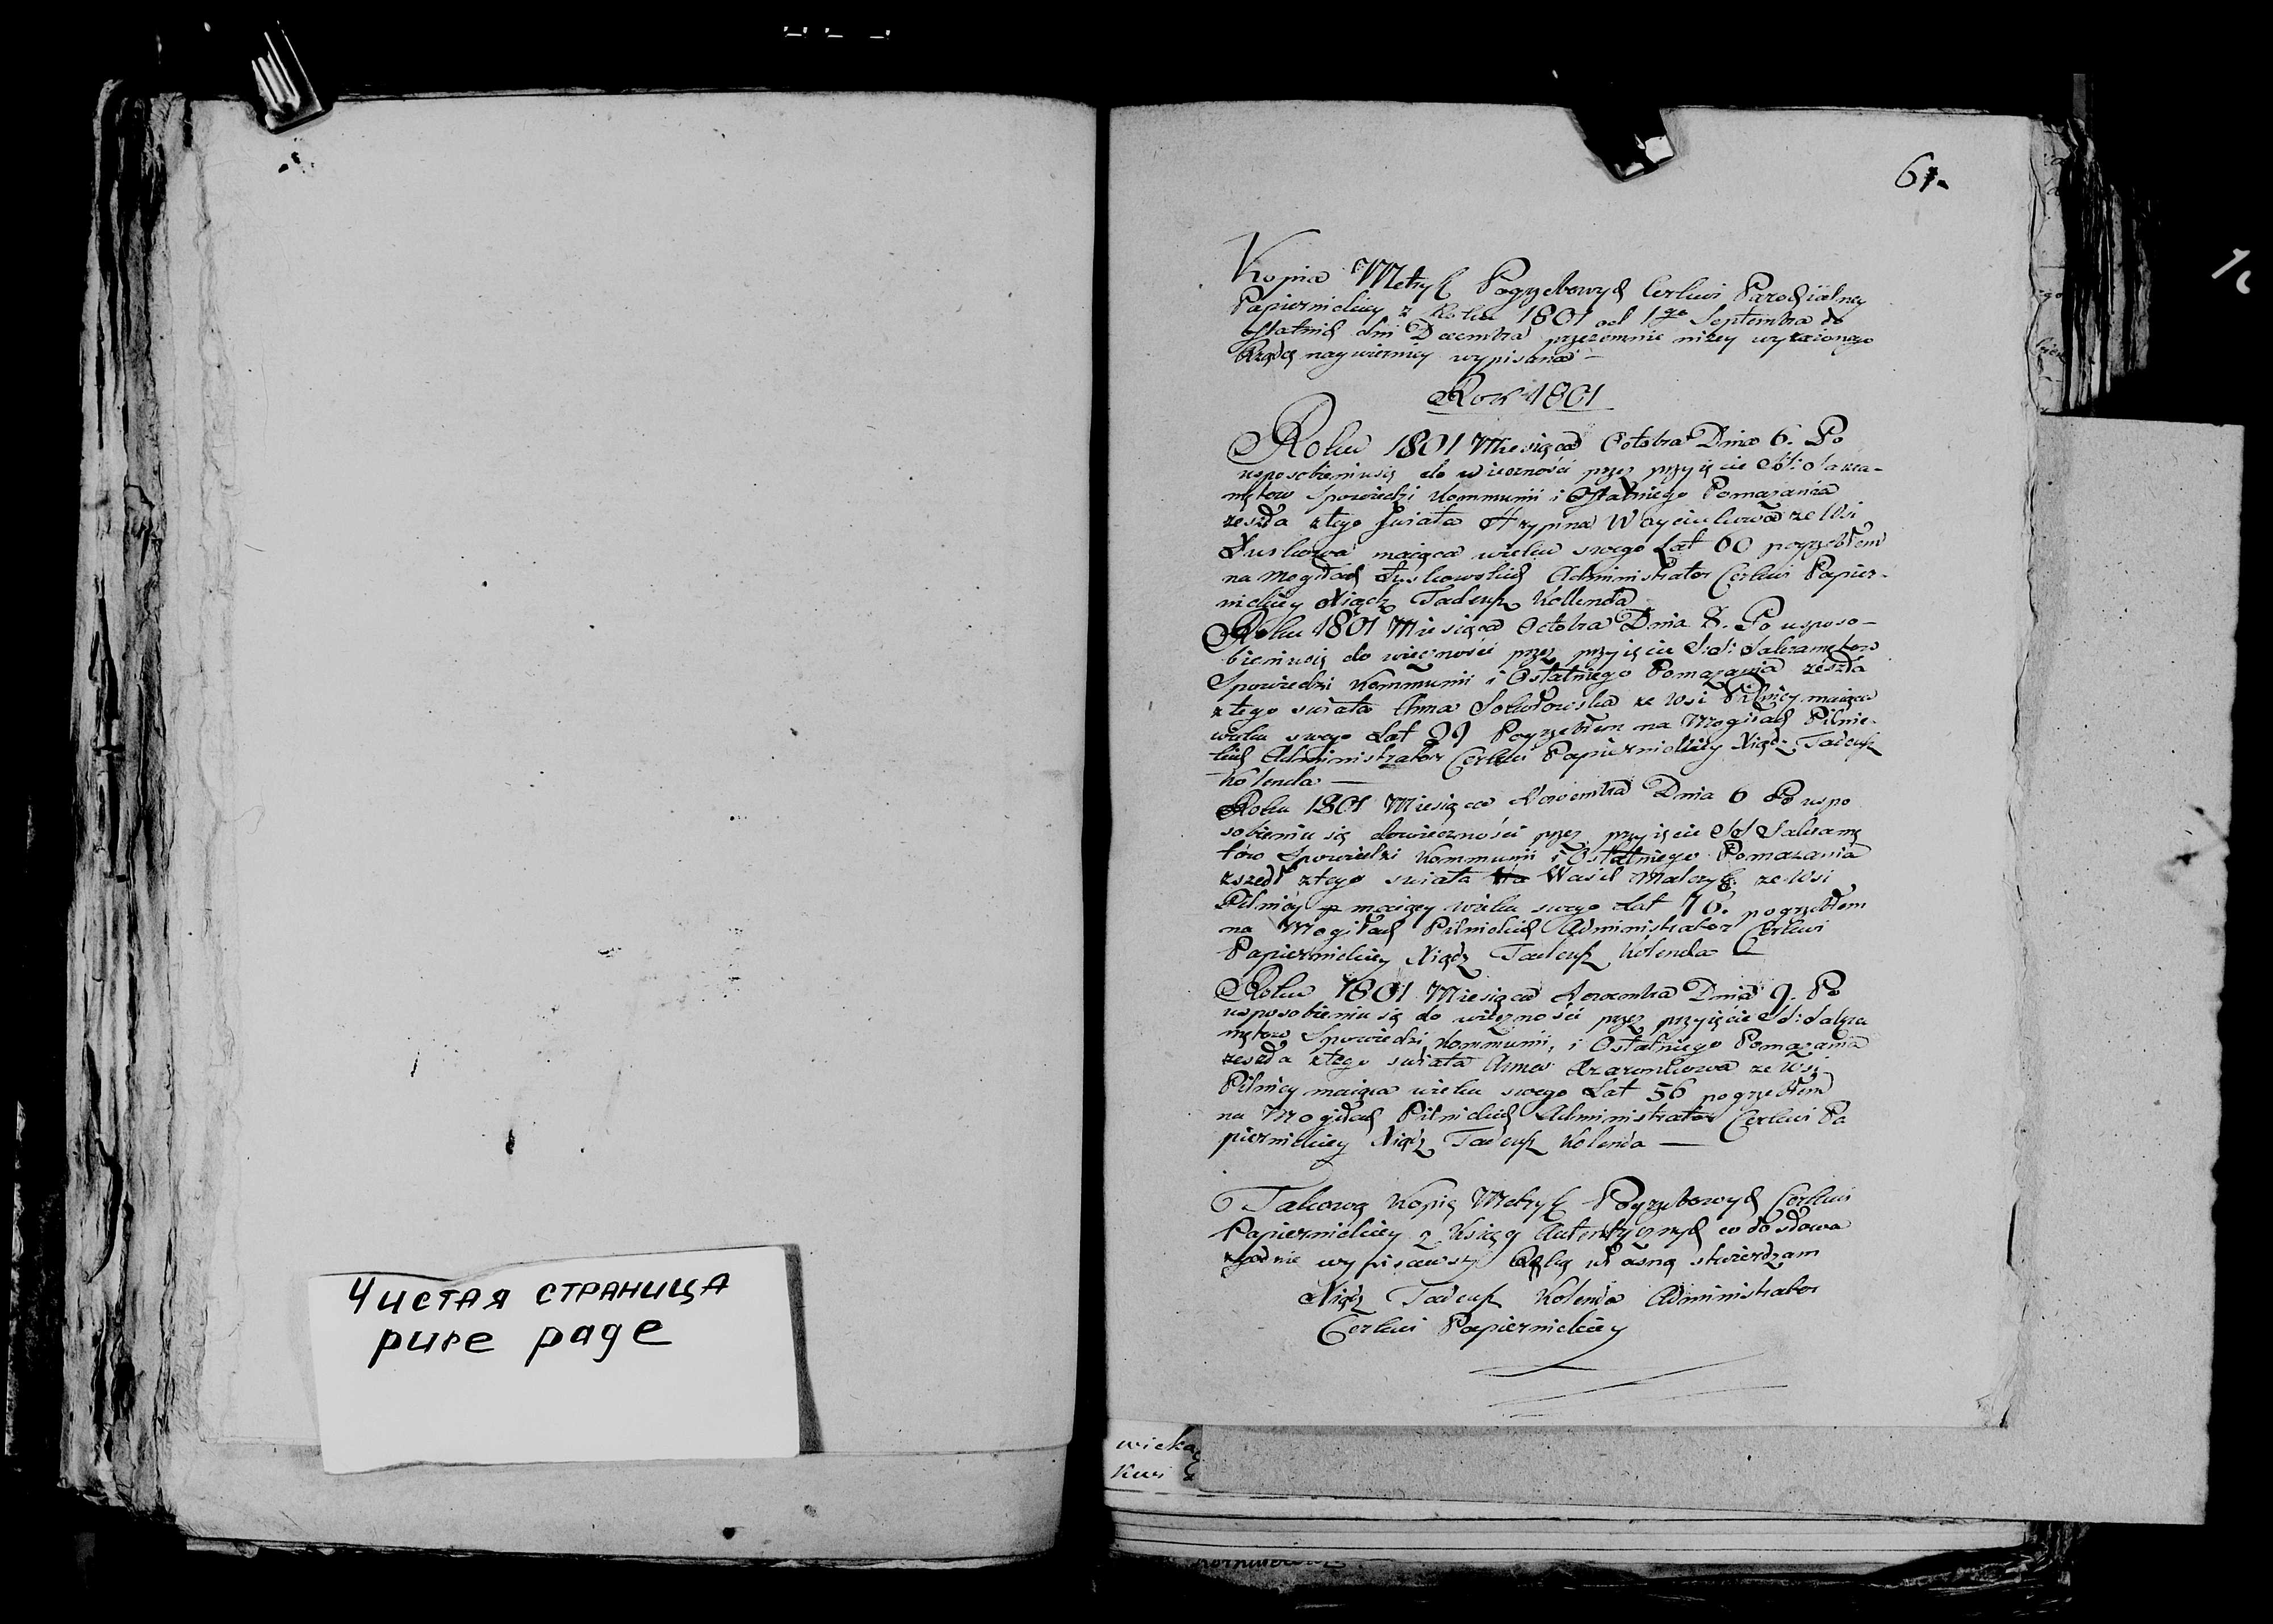 Чистая страница
pure page
61.
Kopia Metryk Pogrzebowych Cerkwi Parochialney
Papiernickiey z Roku 1801 od 1go Septembra do
ostatnich dni Decembra przezemnie niżey wyrażonego
Rządcę naywierniey wypisana —
Rok 1801
Roku 1801 Miesiąca Octobra Dnia 6. Po
usposobieniu się do wieczności przez przyięcie SS: Sakra-
mętow Spowiedzi Kommunii i Ostatniego Pomazania
zeszła z tego świata Hrypina Woyciukowa ze Wsi
maiąca wieku swego Lat 60 pogrzebłem
na Mogiłach Administrator Cerkwi Papier-
nickiey Xiądz Tadeusz Kollenda
Roku 1801 Miesiąca Octobra Dnia 8. Po usposo-
bieniu się do wieczności przez przyięcie SS: Sakramętow
Spowiedzi Kommunii i Ostatniego Pomazania zeszła
z tego swiata Anna ze Wsi Pilnicy maiąca
wieku swego Lat 99 Pogrzebłem na Mogiłach Pilnic-
kich Administrator Cerkwi Papiernickiey Xiądz Tadeusz
Kolenda —
Roku 1801 Miesiąca Novembra Dnia 6 Po uspo
sobieniu się do wieczności przez przyięcie SS Sakramę
tów Spowiedzi Kommunii i Ostatniego Pomazania
zszedł z tego swiata Wasil Malczyk ze Wsi
Pilnicy maiący wieku swego Lat 76. pogrzebłem
na Mogiłach Pilnickich Administrator Cerkwi
Papiernickiey Xiądz Tadeusz Kolenda —
Roku 1801 Miesiąca Novembra Dnia 9. Po
usposobieniu się do wieczności przez przyięcie SS: Sakra
mętow Spowiedzi Kommunii, i Ostatniego Pomazania
zeszła z tego swiata Anna ze Wsi
Pilnicy maiąca wieku swego Lat 56 pogrzebłem
na Mogiłach Pilnickich Administrator Cerkwi Pa
piernickiey Xiądz Tadeusz Kolenda —
Takową Kopię Metryk Pogrzebowych Cerkwi
Papiernickiey z Księg Autentycznych co do słowa
zgodnie wypisawszy Ręką własną stwierdzam
Xiądz Tadeusz Kolenda Administrator
Cerkwi Papiernickiey